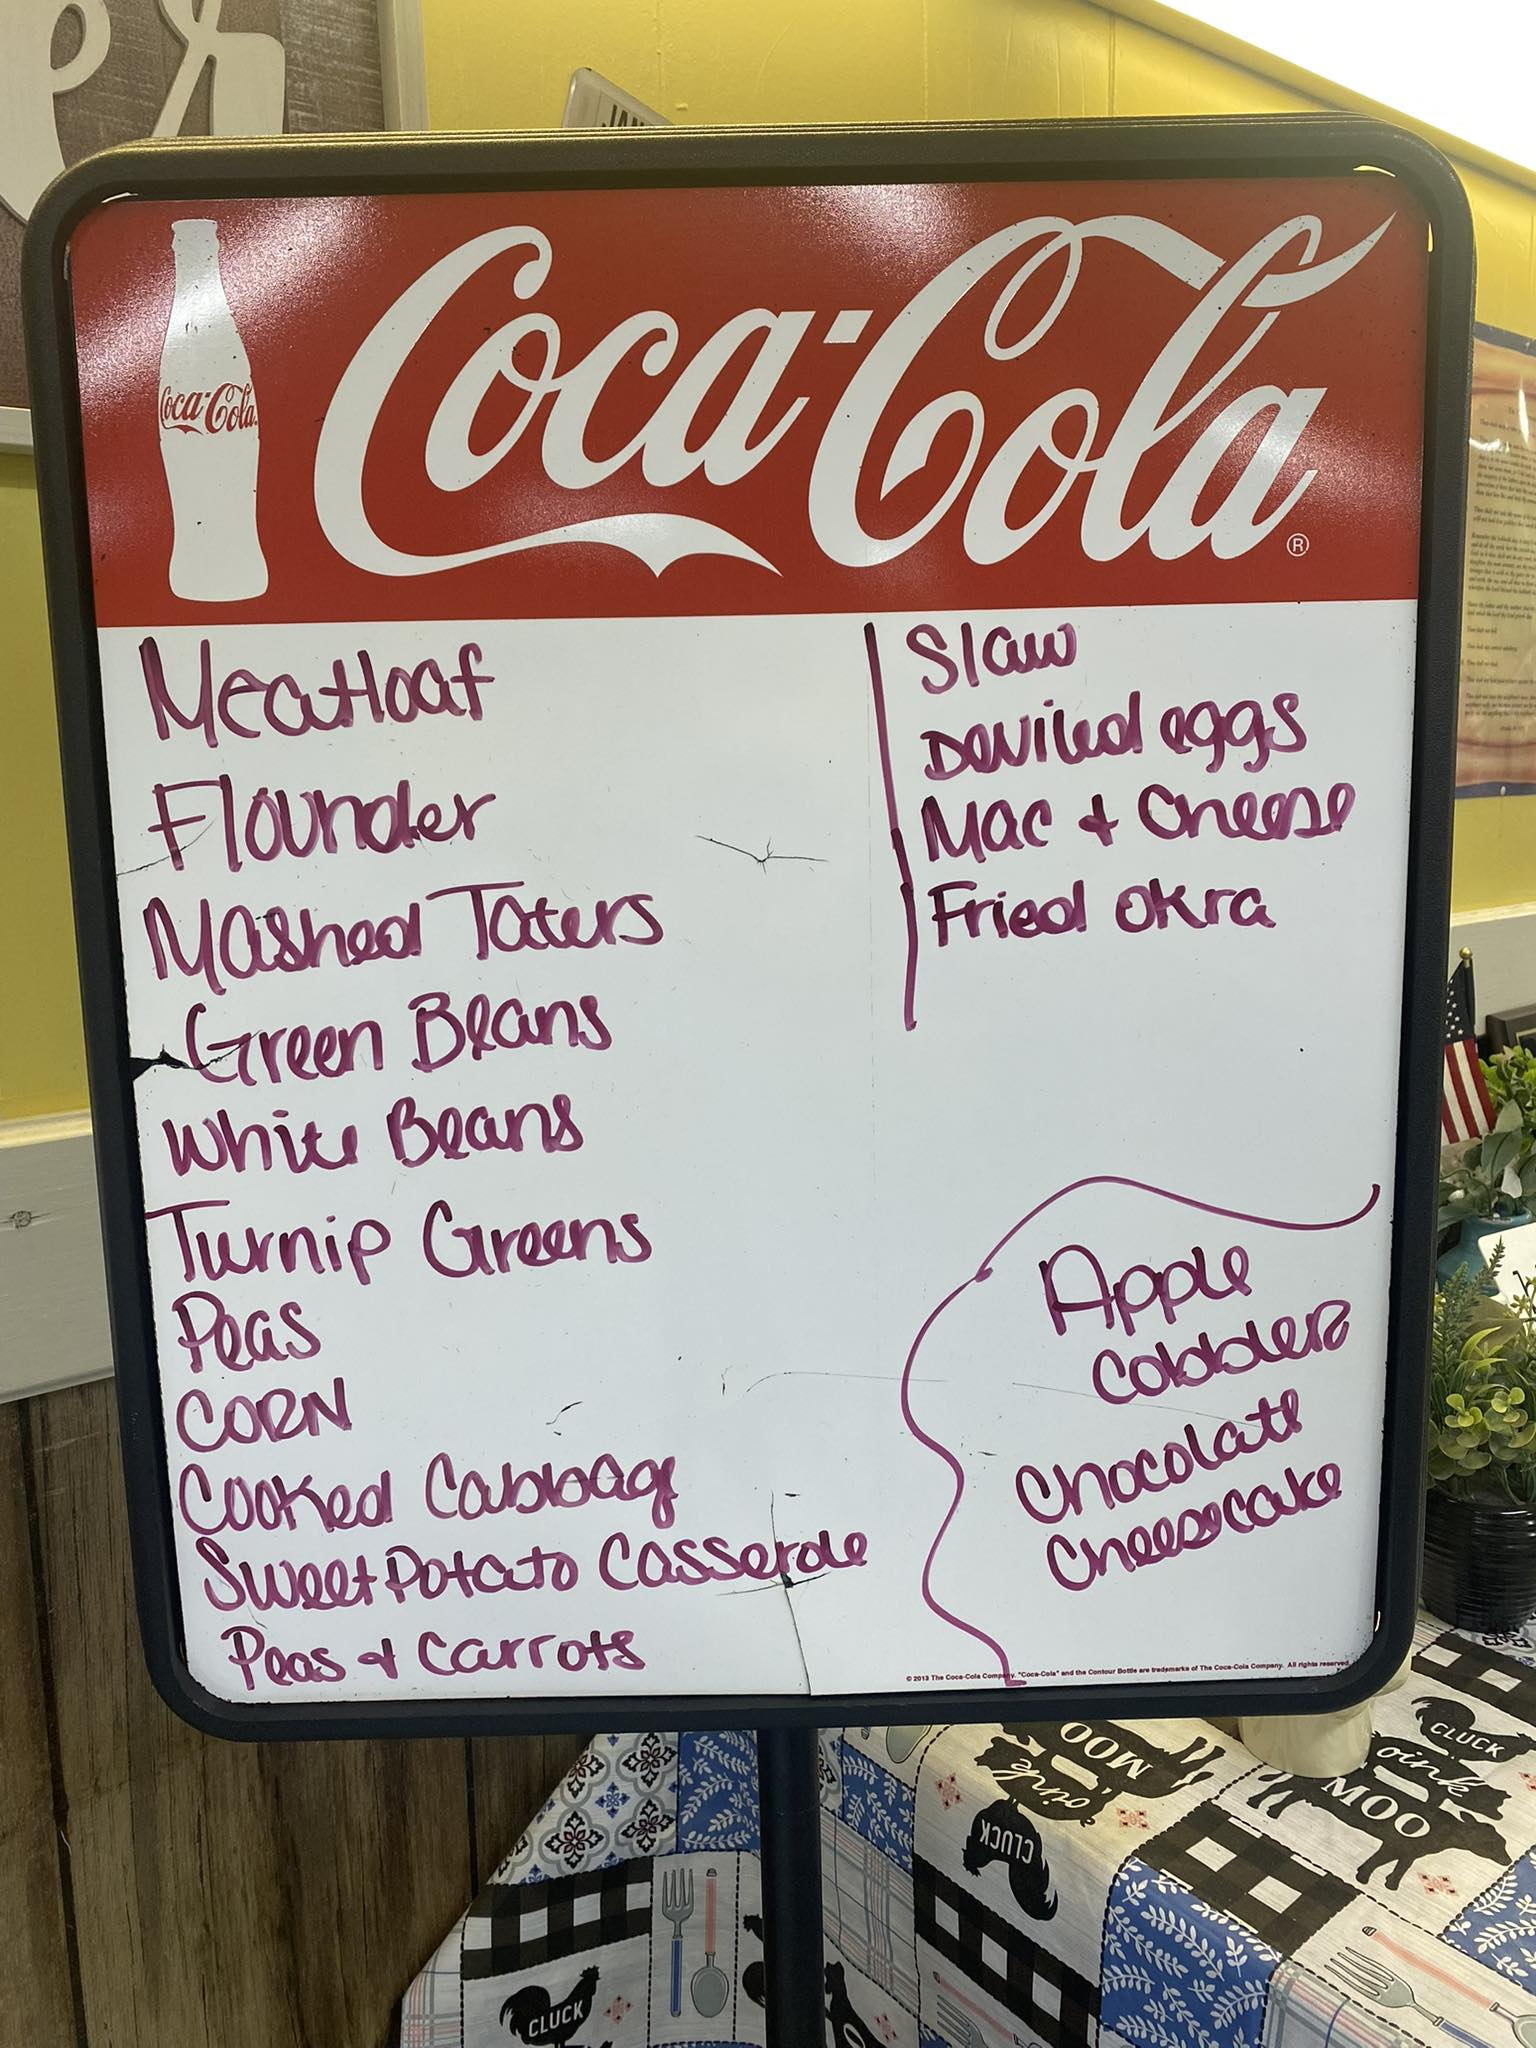 Coca-Cola®
Coca-Cola
Meatloaf
Flounder
Mashed Taters
Green Beans
White Beans
Turnip Greens
Peas
CORN
Cooked Cabbage
Sweet Potato Casserole
Peas & Carrots
Slaw
Deviled eggs
Mac & Cheese
Fried okra
Apple
Cobbler
Chocolate
Cheesecake
© 2013 The Coca-Cola Company. "Coca-Cola" and the Contour Bottle are trademarks of The Coca-Cola Company. All rights reserved.
CLUCK
oink
MOO
MOO
oink
CLUCK
CLUCK